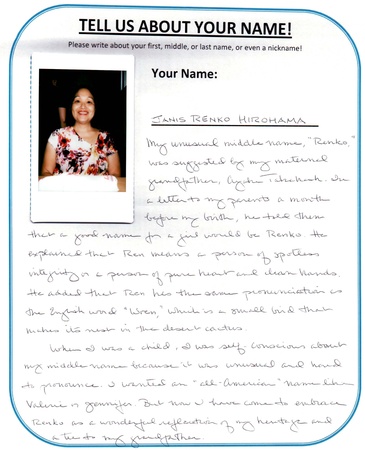 TELL US ABOUT YOUR NAME!
Please write about your first, middle, or last name, or even a nickname!
Your Name:
JANIS RENKO HIROHAMA
My unusual middle name, "Renko,"
was suggested by my maternal
grandfather, Takahashi. In
a letter to my parents a month
before my birth, he told them
that a good name for a girl would be Renko. He
explained that Ren means a person of spotless
integrity or a person of pure heart and clean hands.
He added that Ren has the same pronunciation as
the English word "Wren," which is a small bird that
makes its nest in the desert cactus.
When I was a child, I was self-conscious about
my middle name because it was unusual and hard
to pronounce. I wanted an "all-American" name like
Valerie or Jennifer. But now I have come to embrace
Renko as a wonderful reflection of my heritage and
a tie to my grandfather.